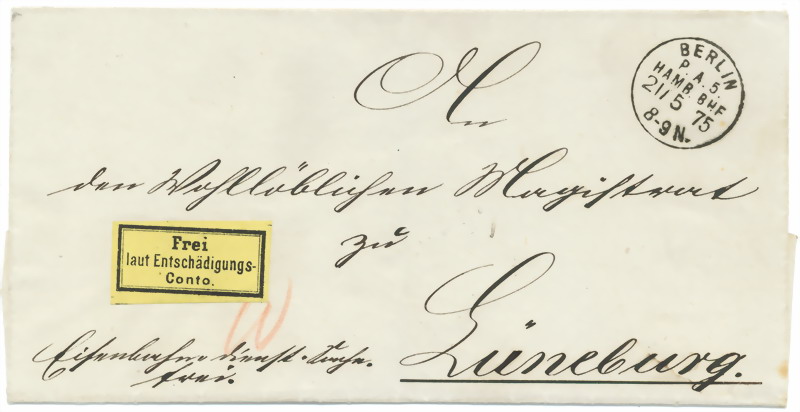 BERLIN
P. A. 5.
HAMB. BHF
21/5 75
8-9 N.
An
den Wohllöblichen Magistrat
zu
Lüneburg.
Frei
laut Entschädigungs-
Conto.
Eisenbahn-dienst-Sache.
frei.